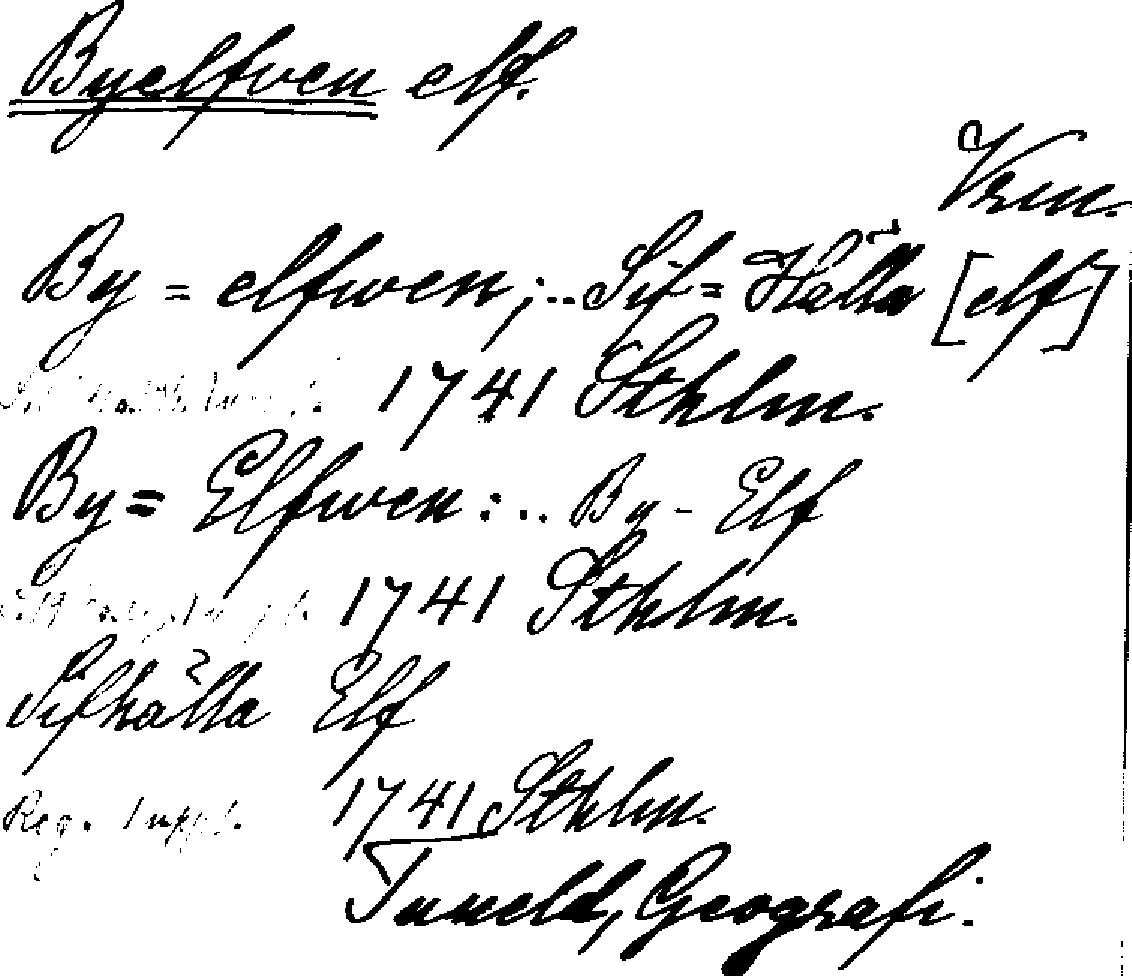 Byelfven elf.
Vrm.
By = elfwen;.. Sif = Hälla [elf]
1741 Sthlm.
By = Elfwen:.. By - Elf
1741 Sthlm.
Sifhälla Elf
Reg. 1 uppl. 1741 Sthlm.
Tuneld, Geografi.